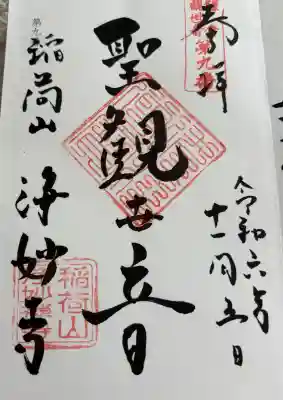 奉拝
第九番
令和六年
十一月五日
聖観世音
第九
稲荷山
浄妙寺
稲荷山